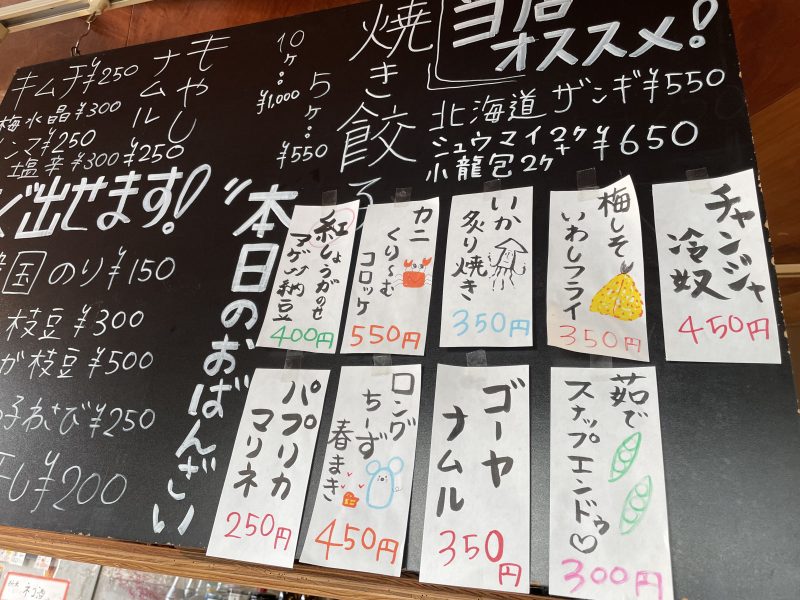 当店
オススメ!
北海道 ザンギ¥550
シュウマイ2ケ+
小龍包2ケ
¥650
焼き餃子
10ケ…¥1,000
5ケ…¥550
もやし
ナムル
¥250
キムチ¥250
梅水晶¥300
¥250
塩辛¥300
出せます!
本日のおばんざい
国のり¥150
枝豆¥300
が枝豆¥500
わさび¥250
干し¥200
チャンジャ
冷奴
450円
梅しそ
いわしフライ
350円
いか
炙り焼き
350円
カニ
くりーむ
コロッケ
550円
紅しょうがのせ
マグロ納豆
400円
茹で
スナップエンドウ♡
300円
ゴーヤ
ナムル
350円
ロング
ちーず
春まき
450円
パプリカ
マリネ
250円